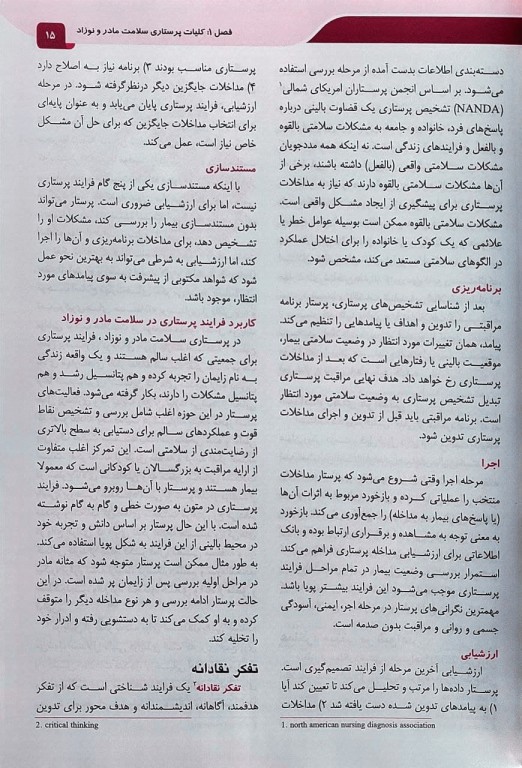 فصل ۱: کلیات پرستاری سلامت مادر و نوزاد
۱۵
دسته‌بندی اطلاعات بدست آمده از مرحله بررسی استفاده
می‌شود. بر اساس انجمن پرستاران امریکای شمالی۱
(NANDA) تشخیص پرستاری یک قضاوت بالینی درباره
پاسخ‌های فرد، خانواده و جامعه به مشکلات سلامتی بالقوه
و بالفعل و فرایندهای زندگی است. نه اینکه همه مددجویان
مشکلات سلامتی واقعی (بالفعل) داشته باشند، برخی از
آن‌ها مشکلات سلامتی بالقوه دارند که نیاز به مداخلات
پرستاری برای پیشگیری از ایجاد مشکل واقعی است.
مشکلات سلامتی بالقوه ممکن است بوسیله عوامل خطر یا
علائمی که یک کودک یا خانواده را برای اختلال عملکرد
در الگوهای سلامتی مستعد می‌کند، مشخص شود.
برنامه‌ریزی
بعد از شناسایی تشخیص‌های پرستاری، پرستار برنامه
مراقبتی را تدوین و اهداف یا پیامدهایی را تنظیم می‌کند.
پیامد، همان تغییرات مورد انتظار در وضعیت سلامتی بیمار،
موقعیت بالینی یا رفتارهایی است که بعد از مداخلات
پرستاری رخ خواهد داد. هدف نهایی مراقبت پرستاری
تبدیل تشخیص پرستاری به وضعیت سلامتی مورد انتظار
است. برنامه مراقبتی باید قبل از تدوین و اجرای مداخلات
پرستاری تدوین شود.
اجرا
مرحله اجرا وقتی شروع می‌شود که پرستار مداخلات
منتخب را عملیاتی کرده و بازخورد مربوط به اثرات آن‌ها
(یا پاسخ‌های بیمار به مداخله) را جمع‌آوری می‌کند. بازخورد
به معنی توجه به مشاهده و برقراری ارتباط بوده و بانک
اطلاعاتی برای ارزشیابی مداخله پرستاری فراهم می‌کند.
استمرار بررسی وضعیت بیمار در تمام مراحل فرایند
پرستاری موجب می‌شود این فرایند بیشتر پویا باشد.
مهمترین نگرانی‌های پرستار در مرحله اجر، ایمنی، آسودگی
جسمی و روانی و مراقبت بدون صدمه است.
ارزشیابی
ارزشیابی آخرین مرحله از فرایند تصمیم‌گیری است.
پرستار داده‌ها را مرتب و تحلیل می‌کند تا تعیین کند آیا
۱) به پیامدهای تدوین شده دست یافته شد ۲) مداخلات
1. north american nursing diagnosis association
پرستاری مناسب بودند ۳) برنامه نیاز به اصلاح دارد
۴) مداخلات جایگزین دیگر درنظرگرفته شود. در مرحله
ارزشیابی، فرایند پرستاری پایان می‌یابد و به عنوان پایه‌ای
برای انتخاب مداخلات جایگزین که برای حل آن مشکل
خاص نیاز است، عمل می‌کند.
مستندسازی
با اینکه مستندسازی یکی از پنج گام فرایند پرستاری
نیست، اما برای ارزشیابی ضروری است. پرستار می‌تواند
بدون مستندسازی بیمار را بررسی کند، مشکلات او را
تشخیص دهد، برای مداخلات برنامه‌ریزی و آن‌ها را اجرا
کند، اما ارزشیابی به شرطی می‌تواند به بهترین نحو عمل
شود که شواهد مکتوبی از پیشرفت به سوی پیامدهای مورد
انتظار، موجود باشد.
کاربرد فرایند پرستاری در سلامت مادر و نوزاد
در پرستاری سلامت مادر و نوزاد، فرایند پرستاری
برای جمعیتی که اغلب سالم هستند و یک واقعه زندگی
به نام زایمان را تجربه کرده و هم پتانسیل رشد و هم
پتانسیل مشکلات را دارند، بکار گرفته می‌شود. فعالیت‌های
پرستار در این حوزه اغلب شامل بررسی و تشخیص نقاط
قوت و عملکردهای سالم برای دستیابی به سطح بالاتری
از رضایت‌مندی از سلامتی است. این تمرکز اغلب متفاوت
از ارایه مراقبت به بزرگسالان یا کودکانی است که معمولا
بیمار هستند و پرستار با آن‌ها روبرو می‌شود. فرایند
پرستاری در متون به صورت خطی و گام به گام نوشته
شده است. با این حال پرستار بر اساس دانش و تجربه خود
در محیط بالینی از این فرایند به شکل پویا استفاده می‌کند.
به طور مثال ممکن است پرستار متوجه شود که مثانه مادر
در مراحل اولیه بررسی پس از زایمان پر شده است. در این
حالت پرستار ادامه بررسی و هر نوع مداخله دیگر را متوقف
کرده و به او کمک می‌کند تا به دستشویی رفته و ادرار خود
را تخلیه کند.
تفکر نقادانه
تفکر نقادانه۲ یک فرایند شناختی است که از تفکر
هدفمند، آگاهانه، اندیشمندانه و هدف محور برای تدوین
2. critical thinking